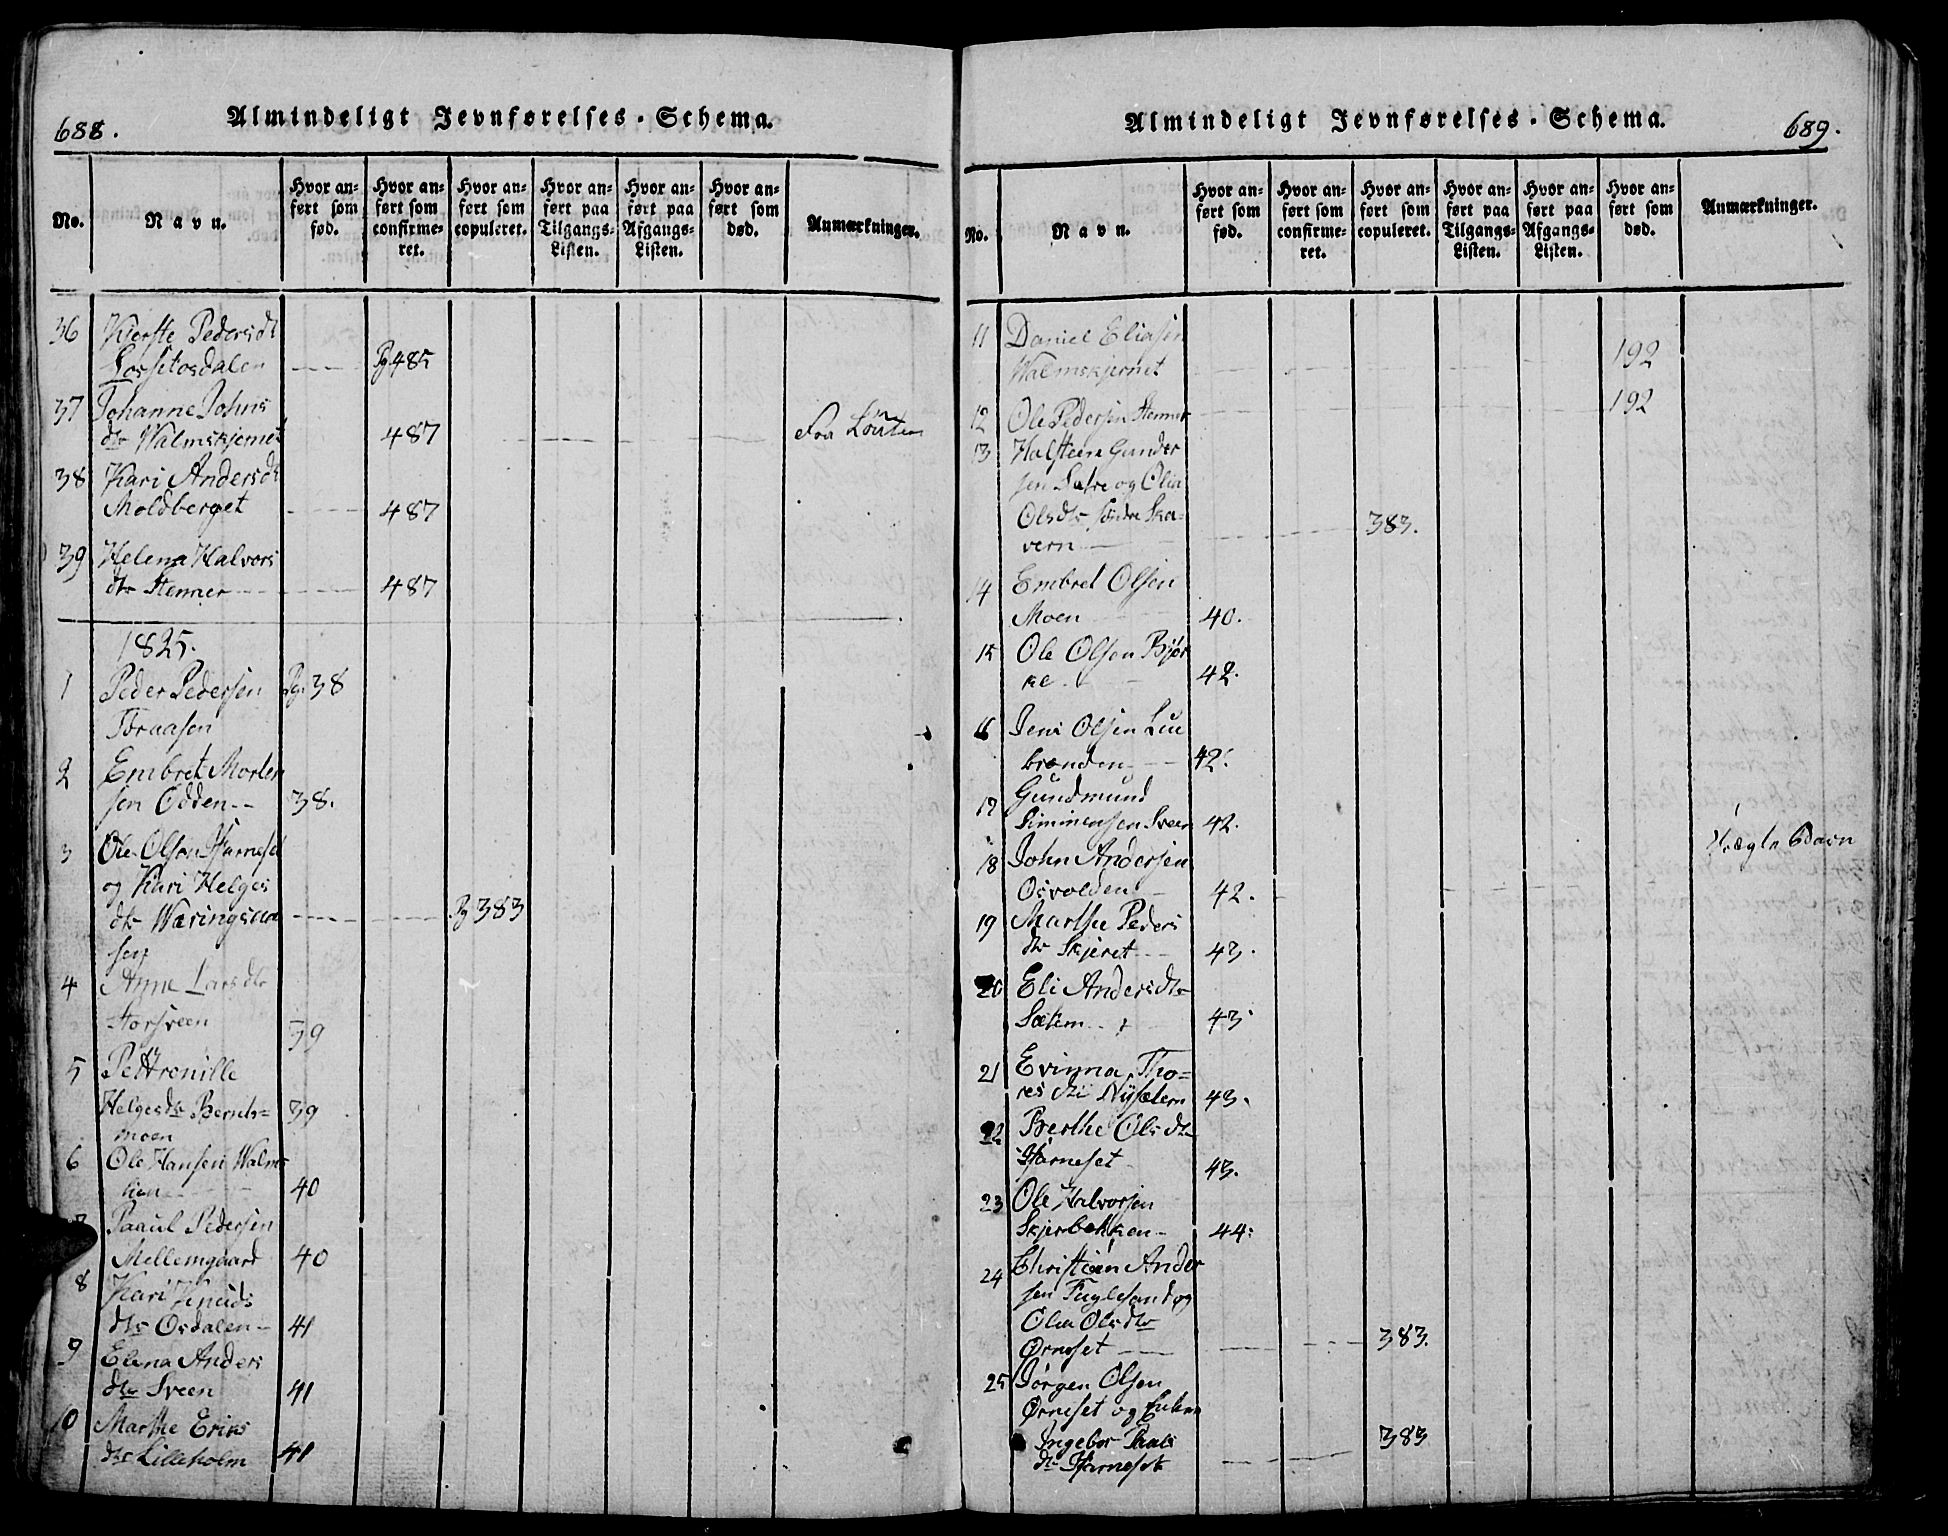 688.
Almindeligt Jevnførelses-Schema.
No.
Navn.
Hvor an-
ført som
fød.
Hvor an-
ført som
confirme-
ret.
Hvor an-
ført som
copuleret.
Hvor an-
ført paa
Tilgangs-
Listen.
Hvor an-
ført paa
Afgangs-
Listen.
Hvor an-
ført som
død.
Anmærkninger.
36 Kierste Pedersdt
Pg 485
37 Johanne Johns
dtr Walmskjernet 487 Løiten
38 Kari Andersdt
Moldberget 487
39 Helena Halvors
dtr Stemer 487
1825.
1 Peder Pedersen Pg. 38
Toraasen
2 Embret Morten
sen Odden 38.
3 Ole Olsen Hjarneset
og Kari Helges
dtr Wæringsaa Pg 383
sen
4 Anne Larsdtr
Storsveen 39
5 Pettronille
Helgesdtr Bernts= 39
moen
6 Ole Hansen Walms
40
7 Paaul Pedersen
Mellemgaard 40
8 Kari Knuds
dtr Osdalen 41
9 Elena Anders
dtr Sveen 41
10 Marthe Eriks
dtr Lilleholm 41
Almindeligt Jevnførelses-Schema.
689.
No.
Navn.
Hvor an-
ført som
fød.
Hvor an-
ført som
confirme-
ret.
Hvor an-
ført som
copuleret.
Hvor an-
ført paa
Tilgangs-
Listen.
Hvor an-
ført paa
Afgangs-
Listen.
Hvor an-
ført som
død.
Anmærkninger.
11 Daniel Eliasen
Walmskjernet 192
12 Ole Pedersen Stemer 192
13 Halsteen Gunder
sen Sætre og Olia
Olsdtr søndre Ska-
vern 383.
14 Embret Olsen
Moen 40.
15 Ole Olsen Bjør
ke 42.
16 Jens Olsen Lu
brænden 42.
17 Gundmund
Simmensen Sveen 42.
18 John Andersen Uægte Barn
Osvolden 42.
19 Marthe Peders
dtr Skjæret 43.
20 Eli Andersdtr
Sætem 43
21 Evinna Tho=
res dtr Nysætem 43.
22 Berthe Olsdtr
Hjarneset 43.
23 Ole Halvorsen
Skjerbekken 44.
24 Christian Ander
sen Fuglesand og
Olia Olsdtr
Ørneset 383.
25 Jørgen Olsen
Ørneset og Enken
Ingebor Paals 383
dtr Hjarneset